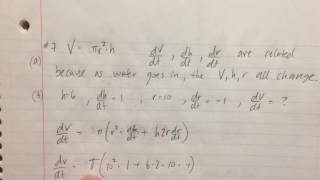 #7 V = πr²·h dV/dt , dh/dt , dr/dt are related
(a) because as water goes in, the V, h, r all change.
(b) h=6 , dh/dt = 1 , r=10 , dr/dt = -1 , dV/dt = ?
dV/dt = π(r²·dh/dt + h2r dr/dt)
dV/dt = π(10²·1 + 6·2·10·-1)